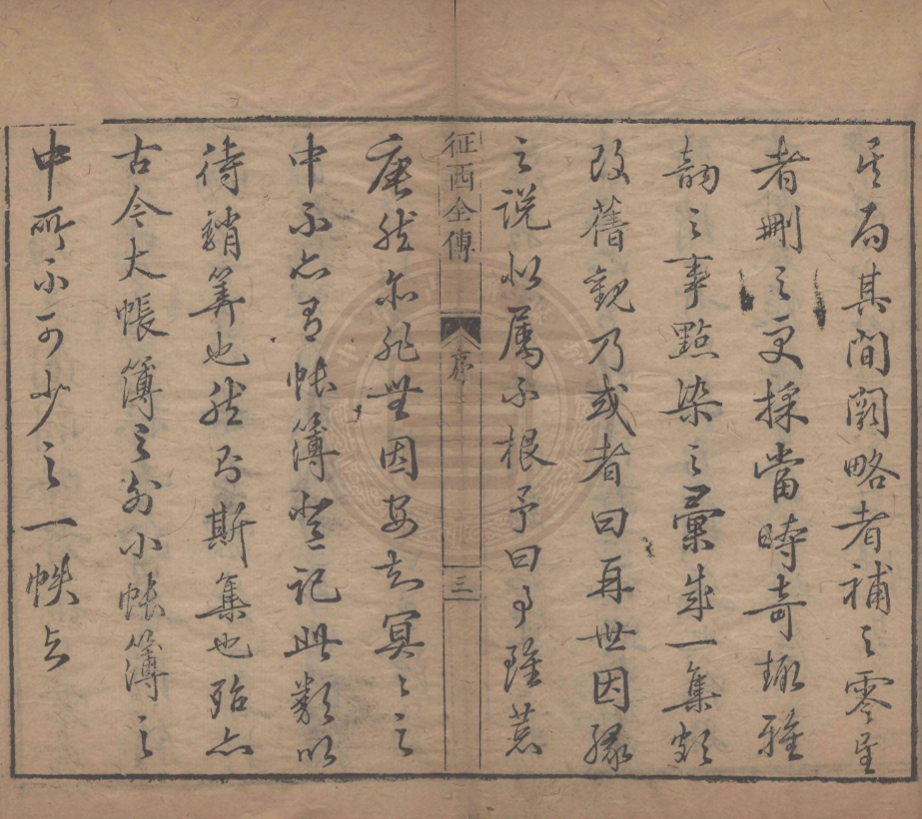 其局其間闕略者補之零星
者刪之更採當時奇趣雅
韻之事點染之彙成一集頗
改舊觀乃或者曰再世因緣
之說似屬不根予曰事雖荒
征西全傳 序 三
唐然亦非無因安知冥〻之
中不亦有帳簿登記此類以
待銷算也然則斯集也殆亦
古今大帳簿之外小帳簿之
中所不可少之一帙与